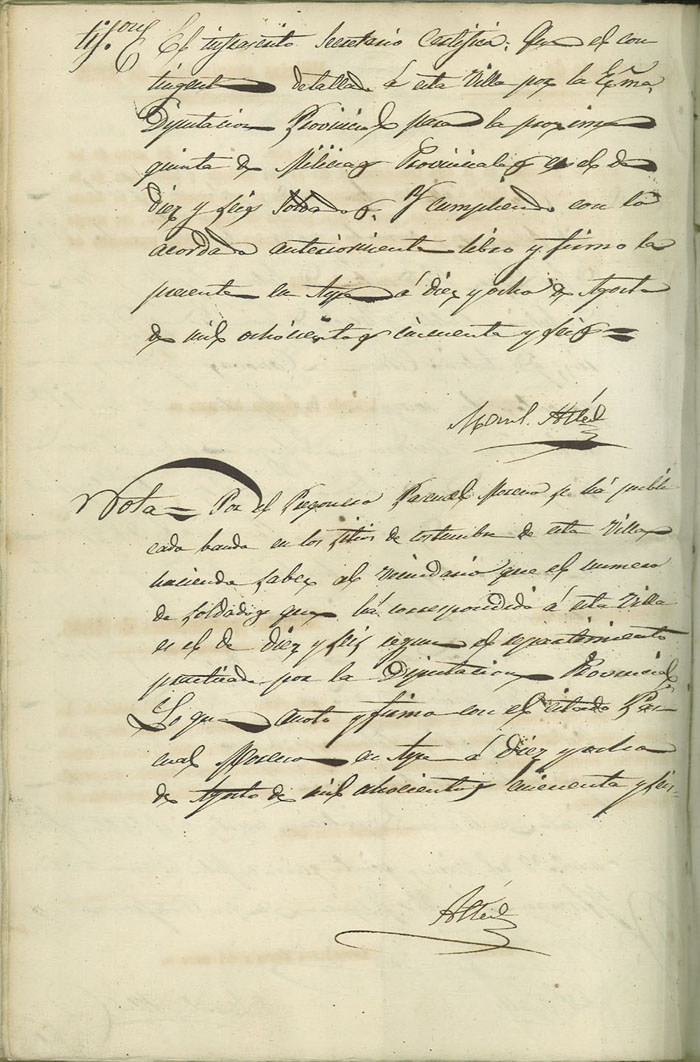 El infrascrito Secretario Certifica: Que el con
tingente detallado á esta Villa por la Exma.
Diputacion Provincial para la proxima
quinta de Milicias Provinciales es el de
diez y seis soldados. Y cumpliendo con lo
acordado anteriormente libro y firmo la
presente en Aspe á diez y ocho de Agosto
de mil ochocientos cincuenta y seis =
Man.l
Nota = Por el Pregonero Pascual Moreno se há publi
cado bando en los sitios de costumbre de esta Villa
haciendo saber al vecindario que el numero
de soldados que há correspondido á esta Villa
es el de diez y seis segun el repartimiento
practicado por la Diputacion Provincial
Lo que anoto y firmo con el citado Pas
cual Moreno en Aspe á diez y ocho
de Agosto de mil ochocientos cincuenta y seis-